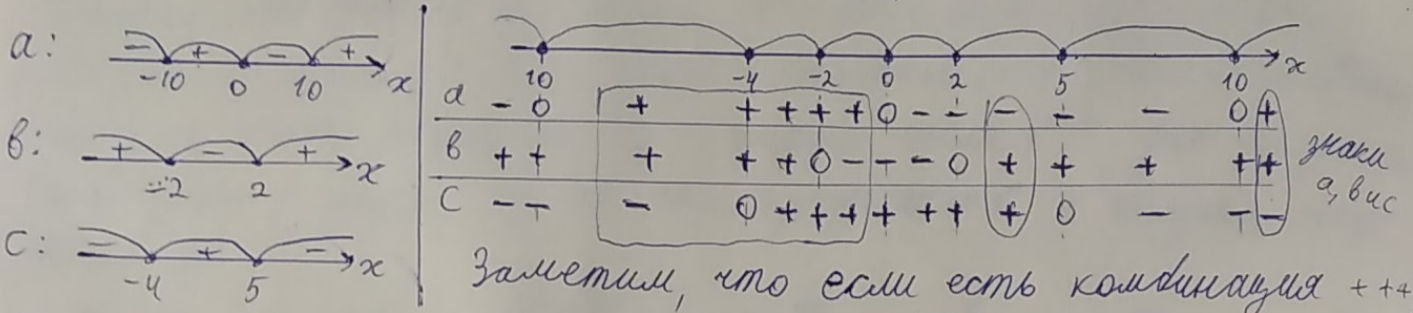 a: − + − + x
−10 0 10
в: + − + x
−2 2
c: − + − x
−4 5
− 10 −4 −2 0 2 5 10 x
a − 0 + + + + + 0 − − − − − 0 +
в + + + + + 0 − − − 0 + + + + +
c − − − 0 + + + + + + + 0 − − −
знаки
a, в и c
Заметим, что если есть комбинация + + +